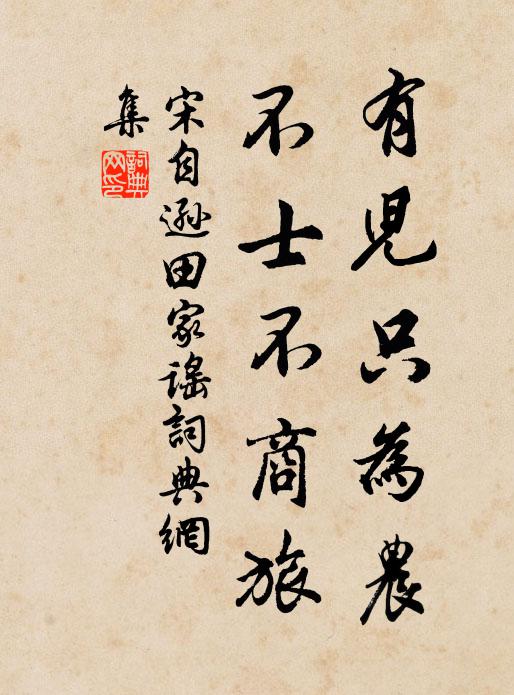 有児只為農
不士不商旅
宋自遜田家謠詞典網
集
詞典
网印